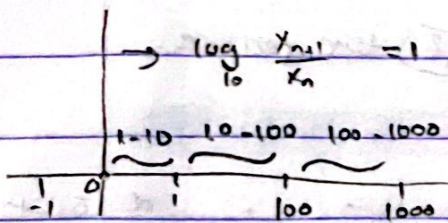 → log₁₀ xₙ₊₁/xₙ = 1
1-10 10-100 100-1000
-1 0 1 100 1000